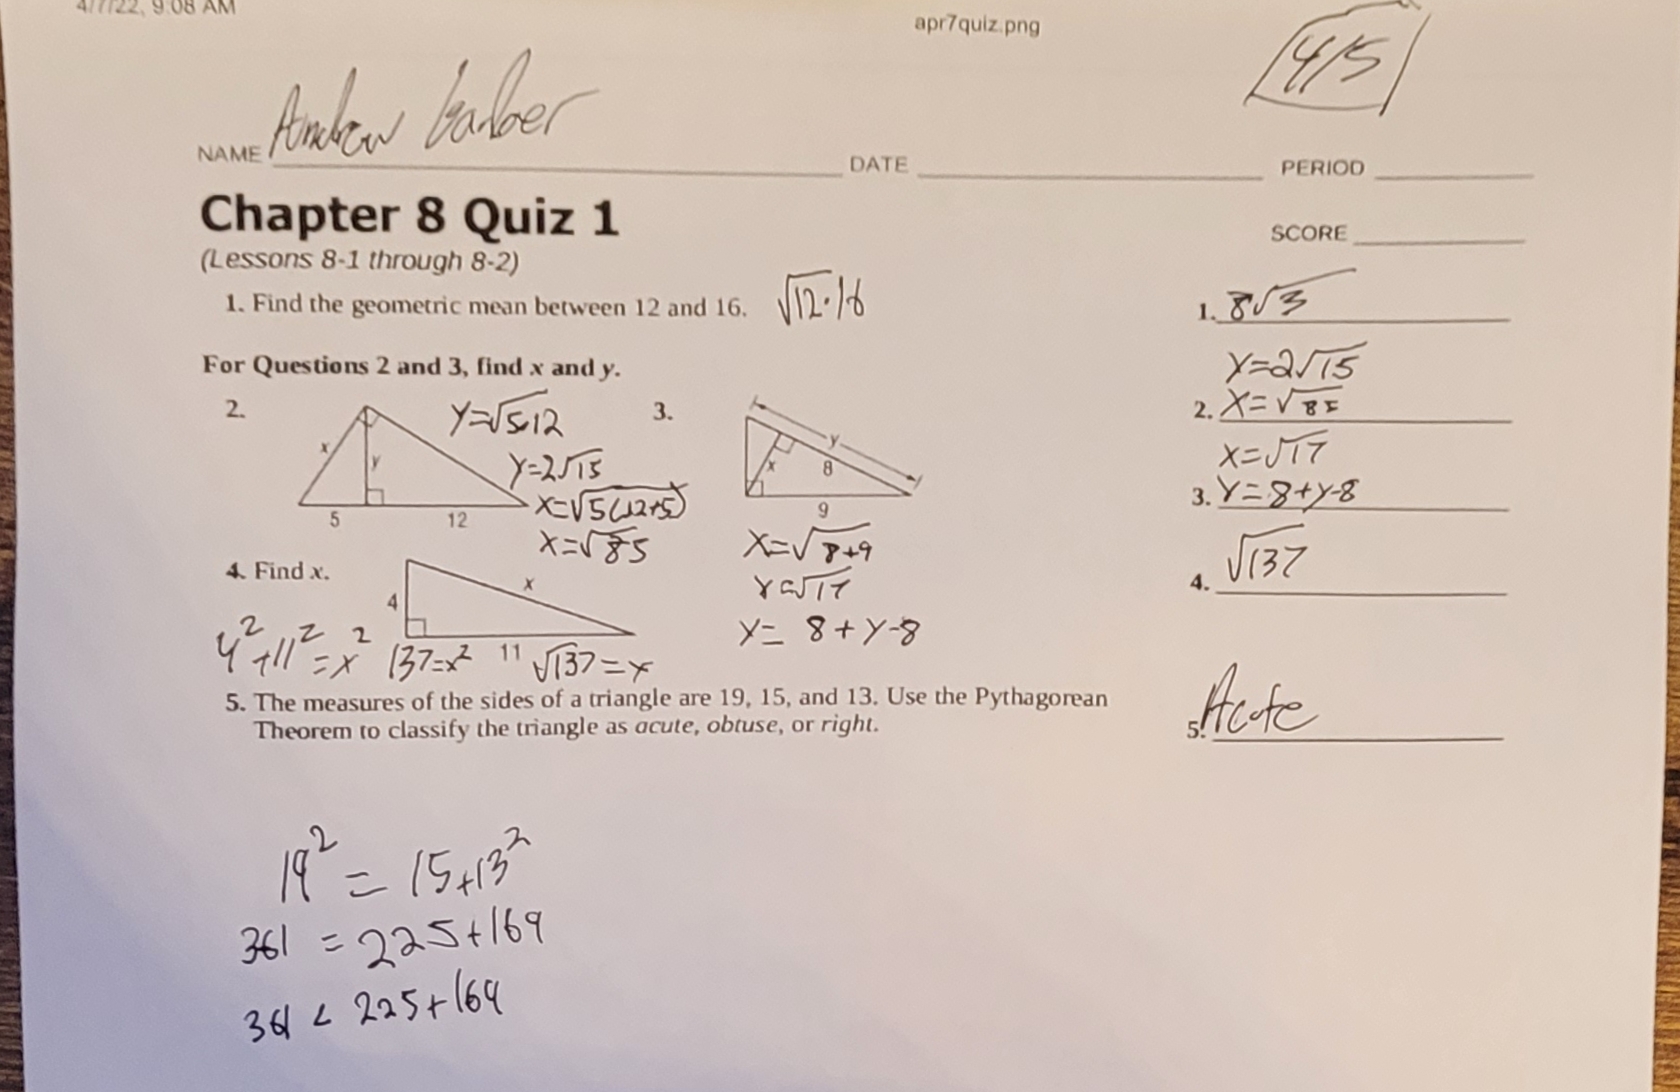 4/7/22, 9:08 AM
apr7quiz.png
4/5
NAME Andrew
DATE
PERIOD
Chapter 8 Quiz 1
SCORE
(Lessons 8-1 through 8-2)
1. Find the geometric mean between 12 and 16. √12·16
1. 8√3
For Questions 2 and 3, find x and y.
y=2√15
2. x=√85
2.
x
y
5
12
y=√5·12
y=2√15
x=√5(12+5)
x=√85
3.
y
x
8
9
x=√8+9
x=√17
y= 8+y-8
x=√17
3. y=8+y-8
4. Find x.
4
x
11
4²+11²=x² 137=x² √137=x
4. √137
5. The measures of the sides of a triangle are 19, 15, and 13. Use the Pythagorean
Theorem to classify the triangle as acute, obtuse, or right.
5. Acute
19² = 15+13²
361 = 225+169
361 < 225+169